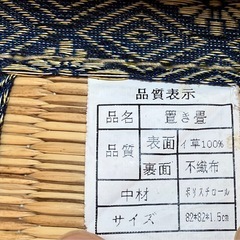 品質表示
品名 置き畳
品質 表面 イ草100%
裏面 不織布
中材 ポリスチロール
サイズ 82*82*1.5cm